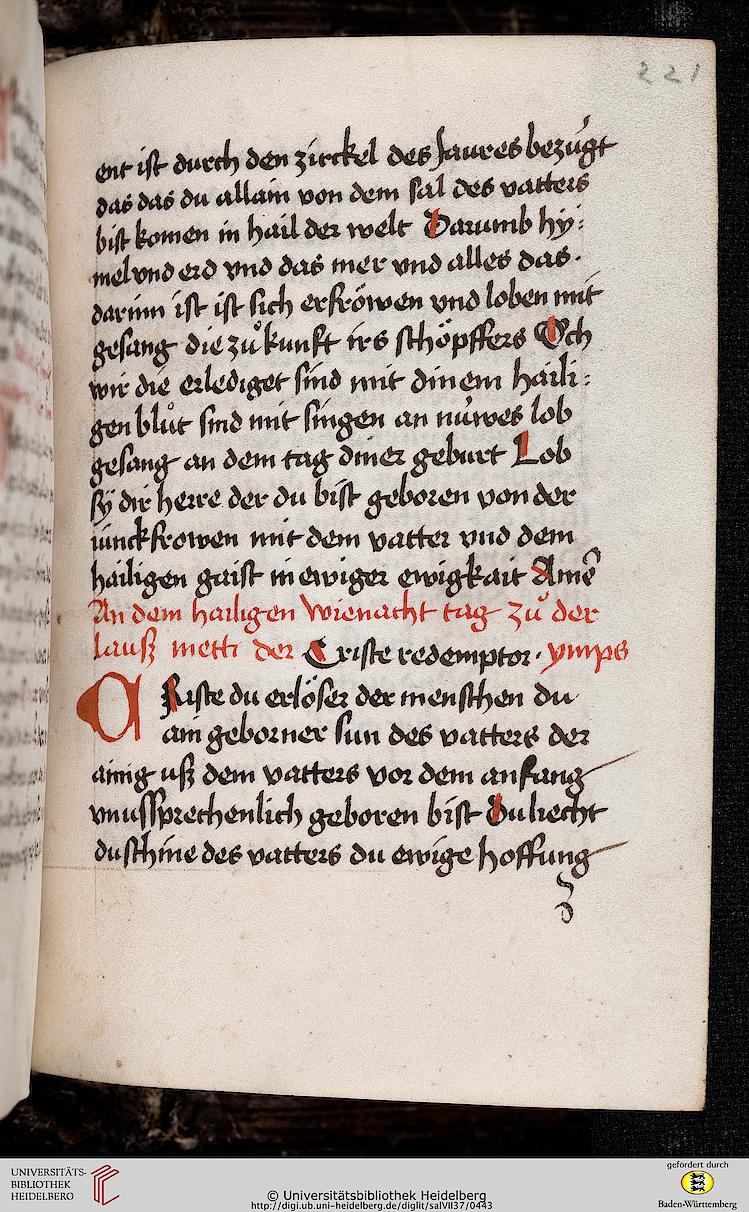 221
ent ist durch den zirckel des Jaures bezúgt
das das du allain von dem sal des vatters
bist komen in hail der welt Darumb hy:
mel vnd erd vnd das mer vnd alles das·
darinn ist ist sich erfröwen vnd loben mit
gesang die zůkunft irs schöpffers Och
wir die erlediget sind mit dinem haili:
gen blůt sind mit singen an núwes lob
gesang an dem tag diner geburt Lob
sÿ dir herre der du bist geboren von der
iunckfrowen mit dem vatter vnd dem
hailigen gaist in ewiger ewigkait Amē
An dem hailigen wienacht tag zů der
lausz metti der Criste redemptor· ymps
CRiste du erlöser der menschen du
ain geborner sun des vatters der
ainig usz dem vatters vor dem anfang
vnussprechenlich geboren bist Du liecht
du schine des vatters du ewige hoffung
UNIVERSITÄTS-
BIBLIOTHEK
HEIDELBERG
© Universitätsbibliothek Heidelberg
http://digi.ub.uni-heidelberg.de/diglit/salVII37/0443
gefördert durch
Baden-Württemberg